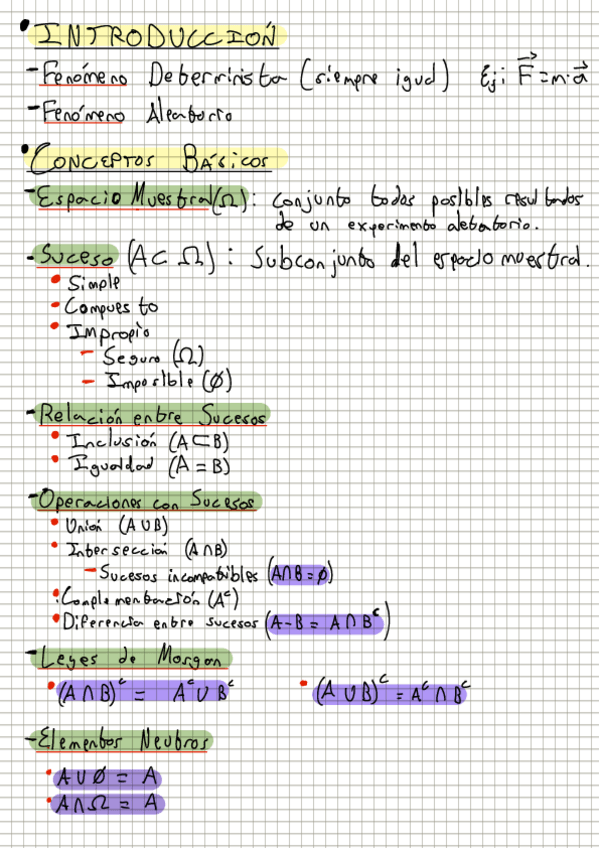 • INTRODUCCIÓN
- Fenómeno Determinista (siempre igual) Ej: F⃗ = m·a⃗
- Fenómeno Aleatorio
• CONCEPTOS BÁSICOS
- Espacio Muestral (Ω): conjunto todos posibles resultados
de un experimento aleatorio.
- Suceso (A⊂Ω): Subconjunto del espacio muestral.
• Simple
• Compuesto
• Impropio
- Seguro (Ω)
- Imposible (∅)
- Relación entre Sucesos
• Inclusión (A⊂B)
• Igualdad (A=B)
- Operaciones con Sucesos
• Unión (A∪B)
• Intersección (A∩B)
- Sucesos incompatibles (A∩B=∅)
• Complementación (Aᶜ)
• Diferencia entre sucesos (A-B = A∩Bᶜ)
- Leyes de Morgan
• (A∩B)ᶜ = Aᶜ∪Bᶜ • (A∪B)ᶜ = Aᶜ∩Bᶜ
- Elementos Neutros
• A∪∅ = A
• A∩Ω = A